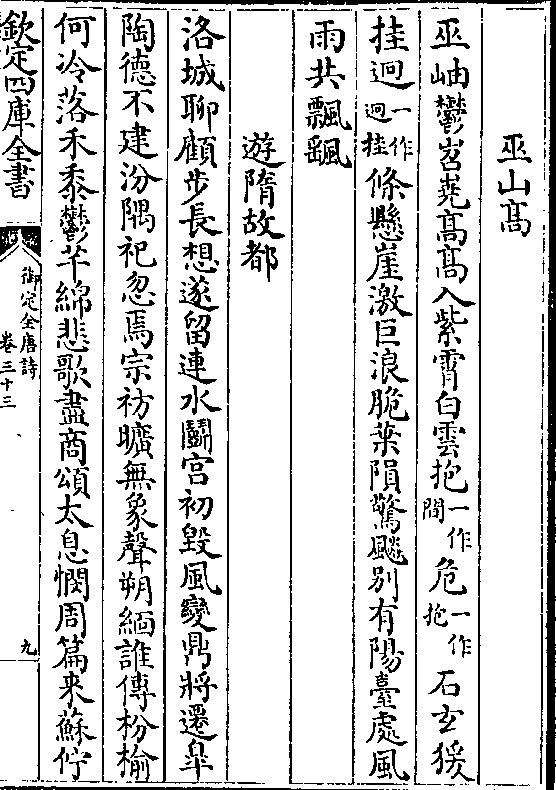 巫山髙
巫岫鬱岧嶤髙髙入紫霄白雲抱一作間危一作抱石玄猨
挂迥一作迥挂條懸崖激巨浪脆葉隕驚飇别有陽臺處風
雨共飄颻
遊隋故都
洛城聊顧步長想遂留連水鬬宫初毀風變鼎將遷臯
陶德不建汾隅祀忽焉宗祊曠無象聲朔緬誰傳枌榆
何冷落禾黍鬱芊綿悲歌盡商頌太息憫周篇来蘇佇
欽定四庫全書
御定全唐詩
卷三十三
九